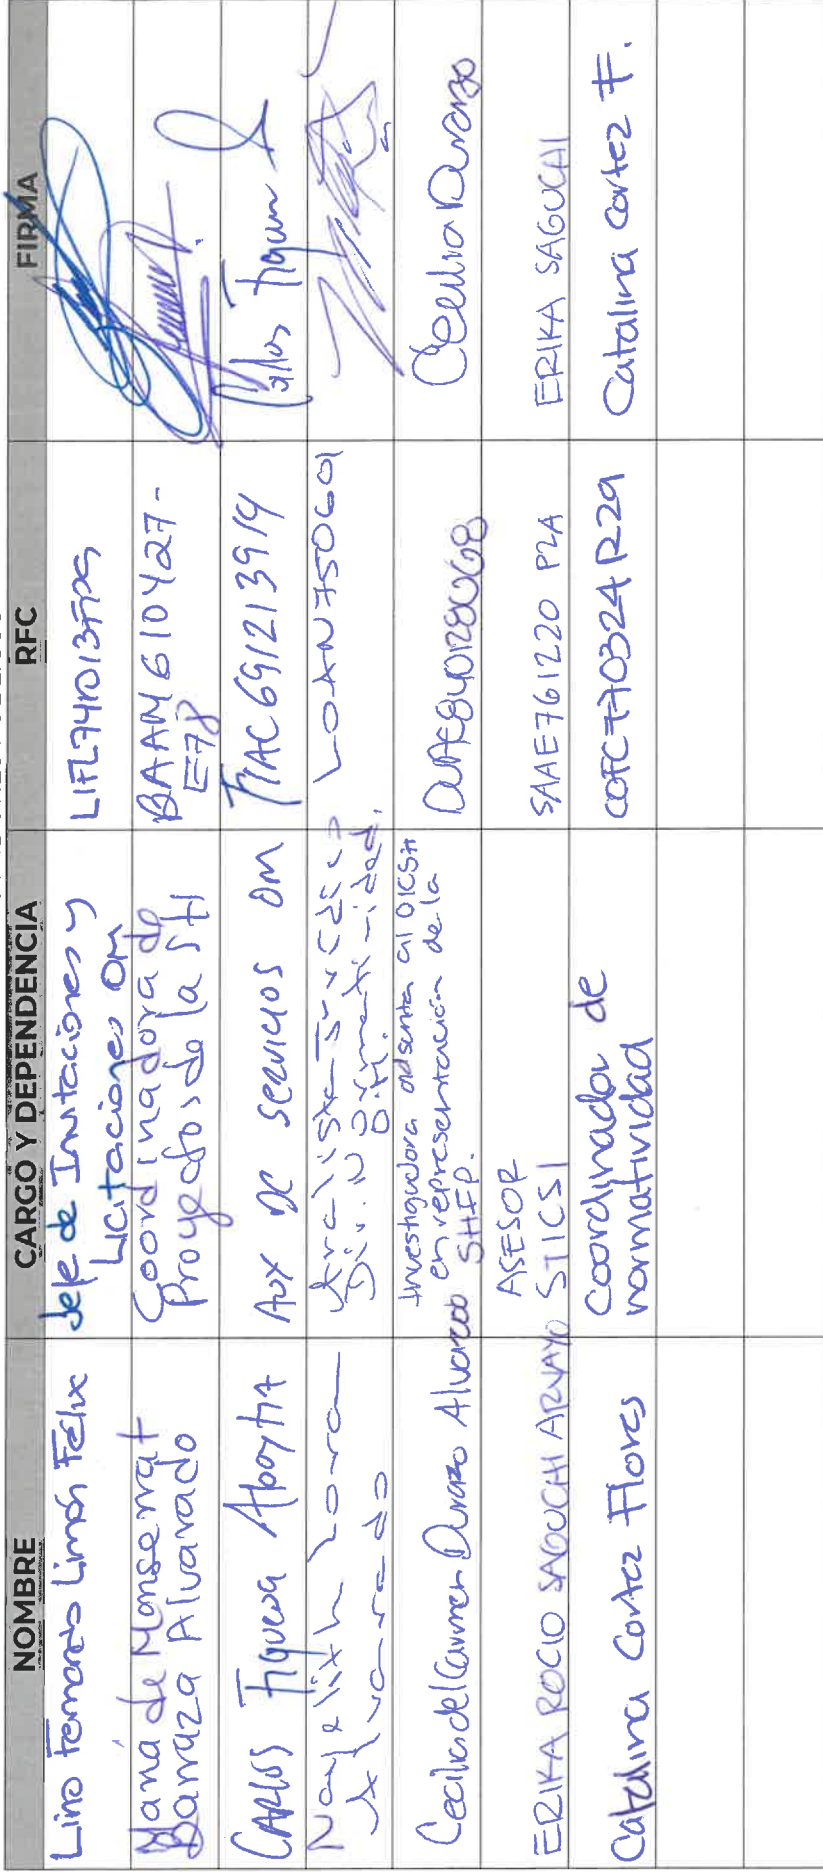 NOMBRE CARGO Y DEPENDENCIA RFC FIRMA
Lino Fernando Limón Félix
Jefe de Invitaciones y
Licitaciones OM
María de Monserrat
Barraza Alvarado
Coordinadora de
Proyectos de la SH
BAAM610427-
E78
CARLOS Figueroa Apoytia
AUX DE SERVICIOS OM
FIAC691213914
Carlos Figueroa
Nayelith Lora
Alvarado
Analista
LOAN750601
Cecilia del Carmen Durazo Alvarado
Investigadora adscrita al OICSH
en representación de la
SHFP.
Cecilia Durazo
ERIKA ROCIO SAGUCHI ARVAYO
ASESOR
STICSI
SAAE761220 PZA
ERIKA SAGUCHI
Catalina Cortez Flores
Coordinador de
normatividad
COFC770324R29
Catalina Cortez F.